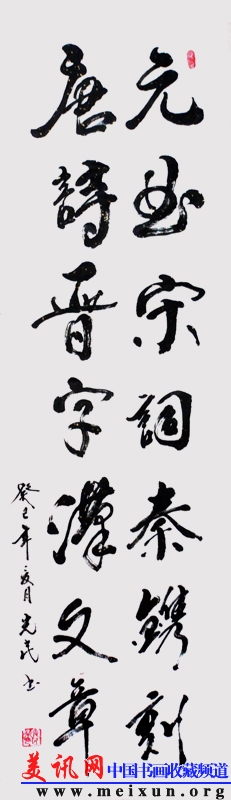 元曲宋詞秦鐫刻
唐詩晋字漢文章
癸巳年夏月光书
美讯网 中国书画收藏频道
www.meixun.net